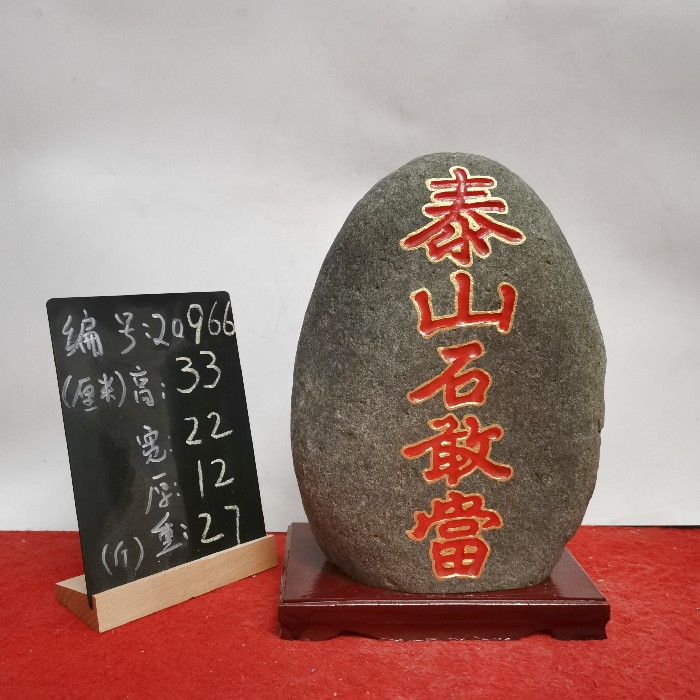 编号:20966
(厘米)高:33
宽:22
厚:12
(斤)重:27
泰山石敢當